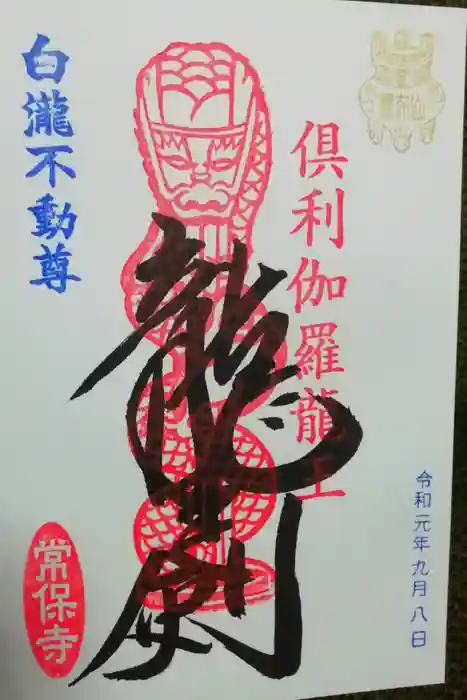 倶利伽羅龍王
龍剣
白瀧不動尊
常保寺
令和元年九月八日